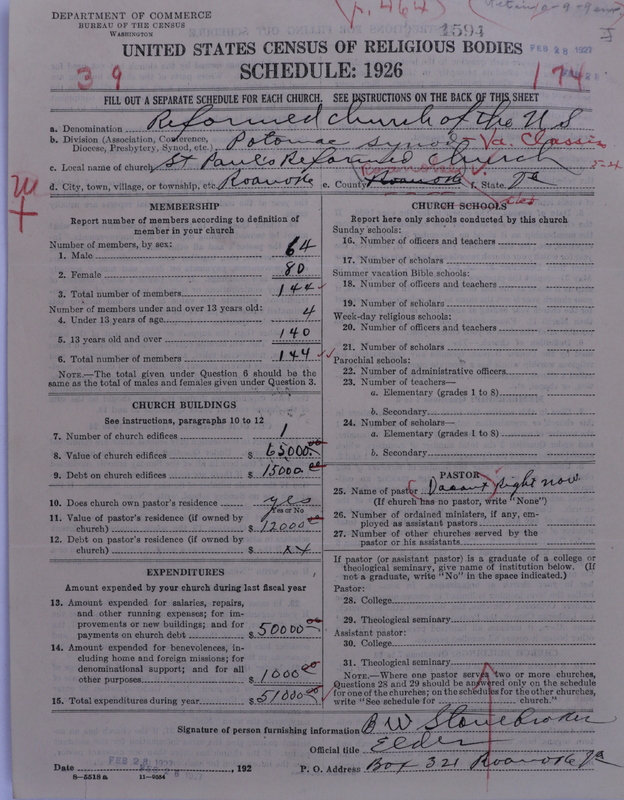 DEPARTMENT OF COMMERCE
BUREAU OF THE CENSUS
WASHINGTON
(p. 464)
1594
UNITED STATES CENSUS OF RELIGIOUS BODIES
FEB 28 1927
SCHEDULE: 1926
39
174
FILL OUT A SEPARATE SCHEDULE FOR EACH CHURCH. SEE INSTRUCTIONS ON THE BACK OF THIS SHEET
a. Denomination Reformed Church of the U S
b. Division (Association, Conference, Diocese, Presbytery, Synod, etc.) Potomac Synod - Va. Classis
c. Local name of church St Paul's Reformed Church
5-4
d. City, town, village, or township, etc. Roanoke e. County Roanoke f. State Va
MEMBERSHIP
Report number of members according to definition of
member in your church
Number of members, by sex:
1. Male 64
2. Female 80
3. Total number of members 144
Number of members under and over 13 years old:
4. Under 13 years of age 4
5. 13 years old and over 140
6. Total number of members 144
NOTE.—The total given under Question 6 should be
the same as the total of males and females given under Question 3.
CHURCH BUILDINGS
See instructions, paragraphs 10 to 12
7. Number of church edifices 1
8. Value of church edifices $ 65000.00
9. Debt on church edifices $ 15000.00
10. Does church own pastor's residence yes
Yes or No
11. Value of pastor's residence (if owned by
church) $ 12000
12. Debt on pastor's residence (if owned by
church) $ xx
EXPENDITURES
Amount expended by your church during last fiscal year
13. Amount expended for salaries, repairs,
and other running expenses; for im-
provements or new buildings; and for
payments on church debt $ 50000
14. Amount expended for benevolences, in-
cluding home and foreign missions; for
denominational support; and for all
other purposes $ 1000.00
15. Total expenditures during year $ 51000.00
CHURCH SCHOOLS
Report here only schools conducted by this church
Sunday schools:
16. Number of officers and teachers
17. Number of scholars
Summer vacation Bible schools:
18. Number of officers and teachers
19. Number of scholars
Week-day religious schools:
20. Number of officers and teachers
21. Number of scholars
Parochial schools:
22. Number of administrative officers
23. Number of teachers—
a. Elementary (grades 1 to 8)
b. Secondary
24. Number of scholars—
a. Elementary (grades 1 to 8)
b. Secondary
PASTOR
25. Name of pastor Vacant right now
(If church has no pastor, write "None")
26. Number of ordained ministers, if any, em-
ployed as assistant pastors
27. Number of other churches served by the
pastor or his assistants
If pastor (or assistant pastor) is a graduate of a college or
theological seminary, give name of institution below. (If
not a graduate, write "No" in the space indicated.)
Pastor:
28. College
29. Theological seminary
Assistant pastor:
30. College
31. Theological seminary
NOTE.—Where one pastor serves two or more churches,
Questions 28 and 29 should be answered only on the schedule
for one of the churches; on the schedules for the other churches,
write "See schedule for church."
Signature of person furnishing information B W Stonebraker
Official title Elder
Date FEB 28 1927, 192
P. O. Address Box 321 Roanoke Va
8—5518 a 11—9034